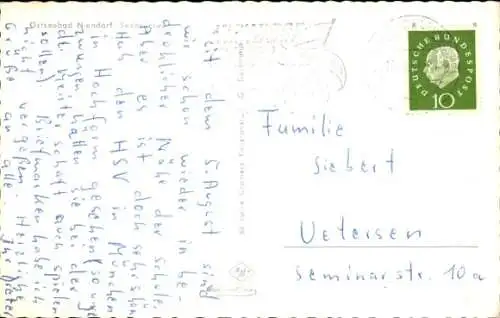 Ostseebad Niendorf
Seit dem 5. August sind
wir schon wieder in be-
drohlicher Nähe der Schule.
Aber es ist doch sehr schön.
Huh den HSV in München
in Hochform gesehen (so
zwischen hatten sie bei der
die Meisterschaft auch spielen
sollen). Briefmarken habe ich
nicht vergeßen. Herzliche
Grüße an alle. Ihr Dieter
DEUTSCHE BUNDESPOST
10
Familie
Siebert
Uetersen
Seminarstr. 10a